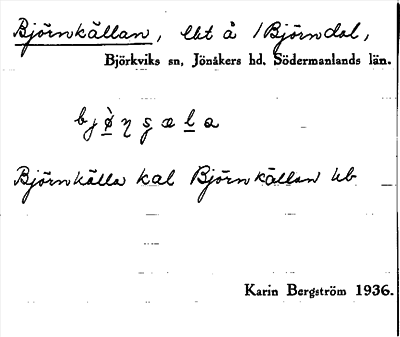 Björnkällan, lht å /Björndal,
Björkviks sn, Jönåkers hd, Södermanlands län.
Björnkälla kal Björnkällan hb
Karin Bergström 1936.